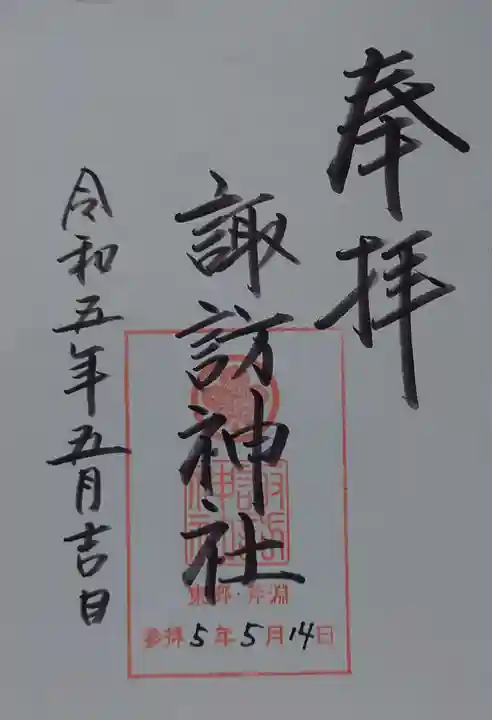 奉拝
諏訪神社
令和五年五月吉日
諏訪神社
東郷・斧淵
参拝5年5月14日